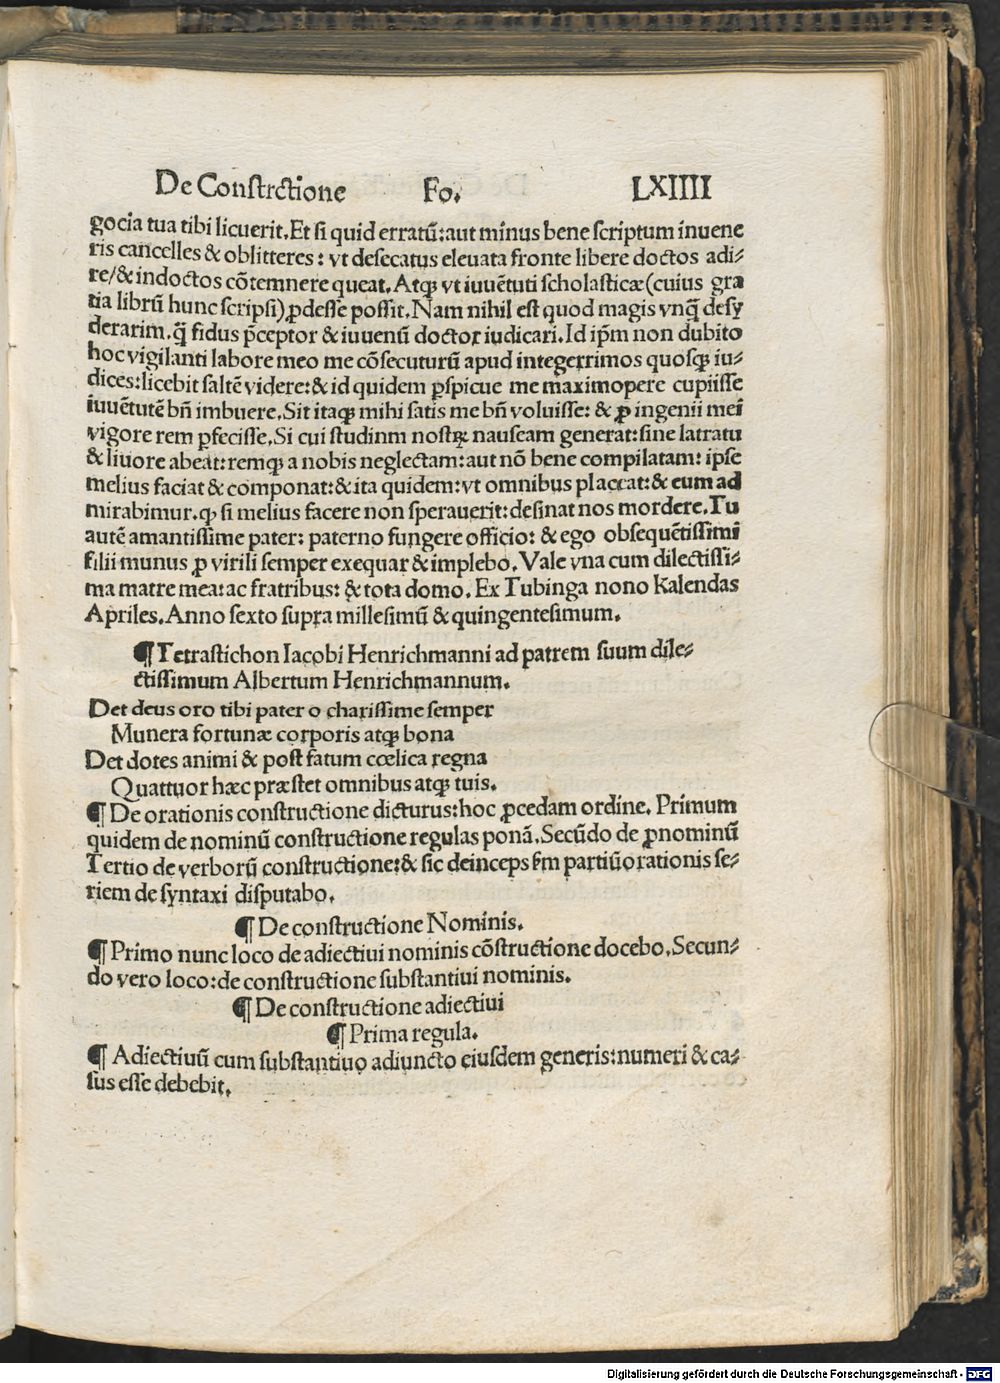 De Constrctione Fo. LXIIII
gocia tua tibi licuerit. Et si quid erratũ: aut minus bene scriptum inuene
ris cancelles & oblitteres: vt defecatus eleuata fronte libere doctos adi-
re/& indoctos cõtemnere queat. Atqꝫ vt iuuẽtuti scholasticæ (cuius gra
tia librũ hunc scripsi) ꝓdesse possit. Nam nihil est quod magis vnq̃ desy
derarim. q̃ fidus p̃ceptor & iuuenũ doctor iudicari. Id ip̃m non dubito
hoc vigilanti labore meo me cõsecuturũ apud integerrimos quosqꝫ iu-
dices: licebit saltẽ videre: & id quidem ꝑspicue me maximopere cupiisse
iuuẽtutẽ bñ imbuere. Sit itaqꝫ mihi satis me bñ voluisse: & ꝓ ingenii mei
vigore rem ꝑfecisse. Si cui studinm nostrꝝ nauseam generat: sine latratu
& liuore abeat: remqꝫ a nobis neglectam: aut nõ bene compilatam: ipse
melius faciat & componat: & ita quidem: vt omnibus placeat: & eum ad
mirabimur. qꝫ si melius facere non sperauerit: desinat nos mordere. Tu
autẽ amantissime pater: paterno fungere officio: & ego obsequẽtissimi
filii munus ꝓ virili semper exequar & implebo. Vale vna cum dilectissi-
ma matre mea: ac fratribus: & tota domo. Ex Tubinga nono Kalendas
Apriles. Anno sexto supra millesimũ & quingentesimum.
¶ Tetrastichon Iacobi Henrichmanni ad patrem suum dile-
ctissimum Albertum Henrichmannum.
Det deus oro tibi pater o charissime semper
Munera fortunæ corporis atqꝫ bona
Det dotes animi & post fatum cœlica regna
Quattuor hæc præstet omnibus atqꝫ tuis.
¶ De orationis constructione dicturus: hoc ꝓcedam ordine. Primum
quidem de nominũ constructione regulas ponã. Secũdo de ꝓnominũ
Tertio de verborũ constructione: & sic deinceps ẜm partiũ orationis se-
riem de syntaxi disputabo.
¶ De constructione Nominis.
¶ Primo nunc loco de adiectiui nominis cõstructione docebo. Secun-
do vero loco: de constructione substantiui nominis.
¶ De constructione adiectiui
¶ Prima regula.
¶ Adiectiuũ cum substantiuo adiuncto eiusdem generis: numeri & ca-
sus esse debebit.
Digitalisierung gefördert durch die Deutsche Forschungsgemeinschaft - DFG